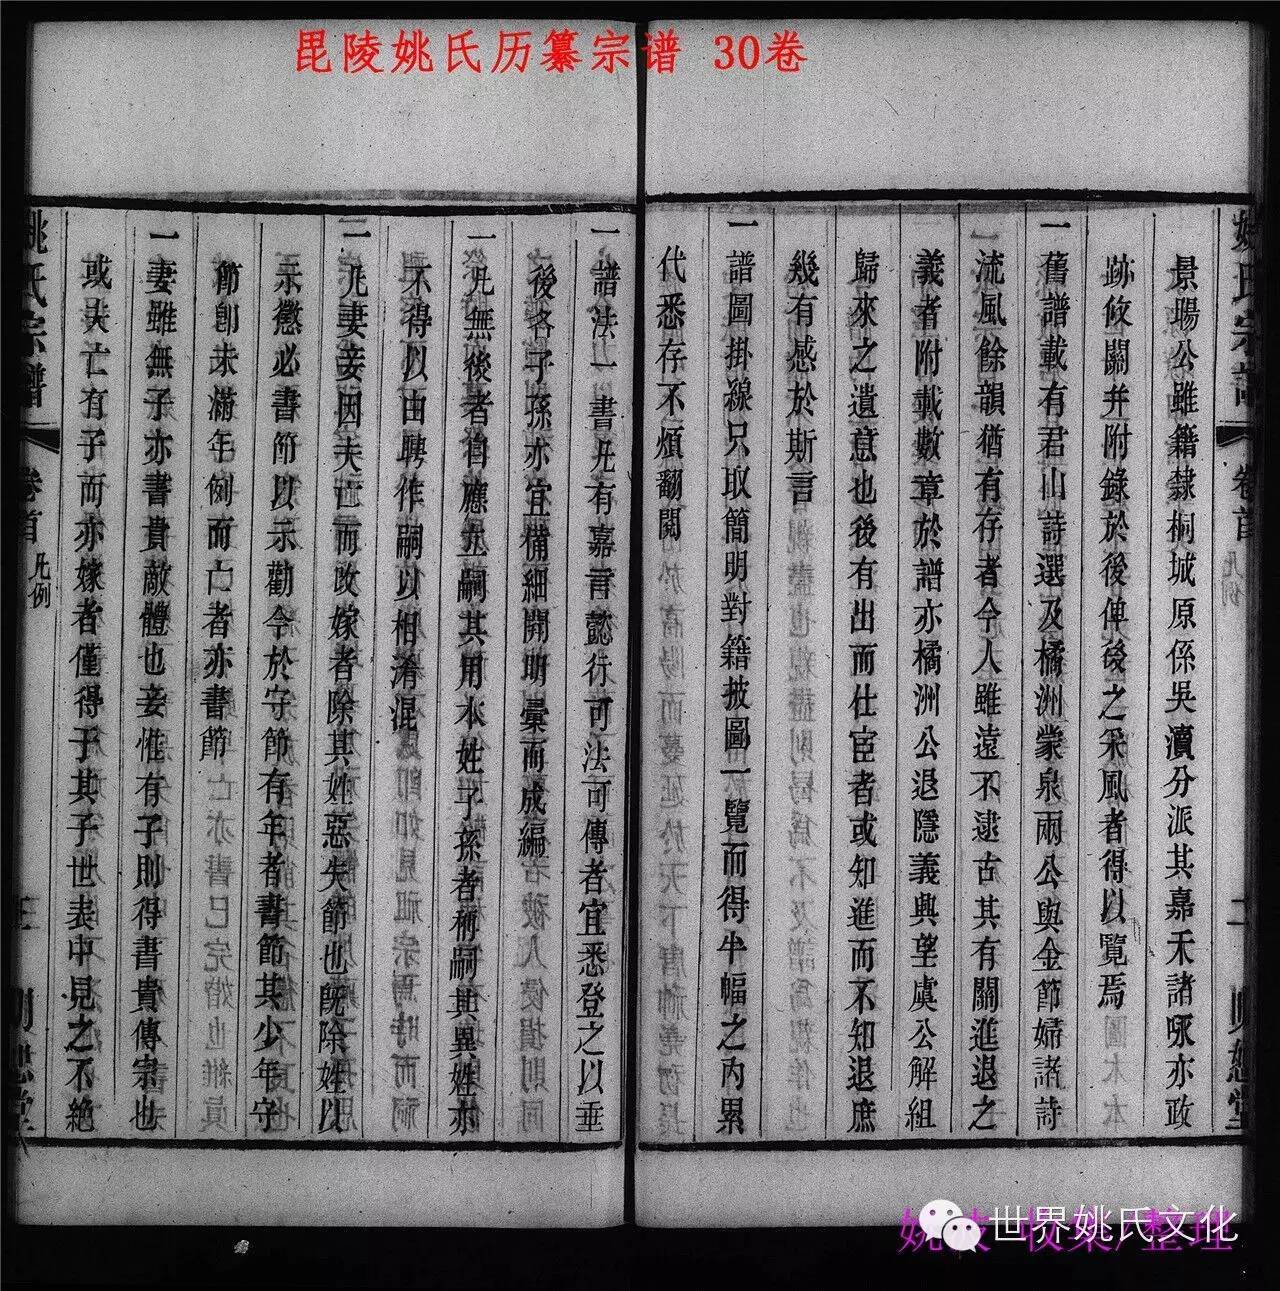 毘陵姚氏历纂宗谱 30卷
景陽公雖籍隸桐城原係吳瀆分派其嘉禾諸啄亦政
跡攸關并附錄於後俾後之采風者得以覽焉
一舊譜載有君山詩選及橘洲蒙泉兩公與金節婦諸詩
流風餘韻猶有存者今人雖遠不逮古其有關進退之
義者附載數章於譜亦橘洲公退隱義興望虞公解組
歸來之遺意也後有出而仕宦者或知進而不知退庶
幾有感於斯言
一譜圖掛線只取簡明對籍披圖一覽而得半幅之內累
代悉存不煩翻閱
卷首
凡例
二
一譜法一書凡有嘉言懿行可法可傳者宜悉登之以垂
後各子孫亦宜備細開明彙而成編
一凡無後者自應立嗣其用本姓子孫者稱嗣其異姓亦
不得以由聘作嗣以相淆混
一凡妻妾因夫亡而改嫁者除其姓惡失節也旣除姓以
示懲必書節以示勸今於守節有年者書節其少年守
節卽未滿年例而亡者亦書節
一妻雖無子亦書貴敵體也妾惟有子則得書貴傳宗也
或夫亡有子而亦嫁者僅得于其子世表中見之不絕
姚氏宗譜
卷首
凡例
三
世界姚氏文化
收集/整理